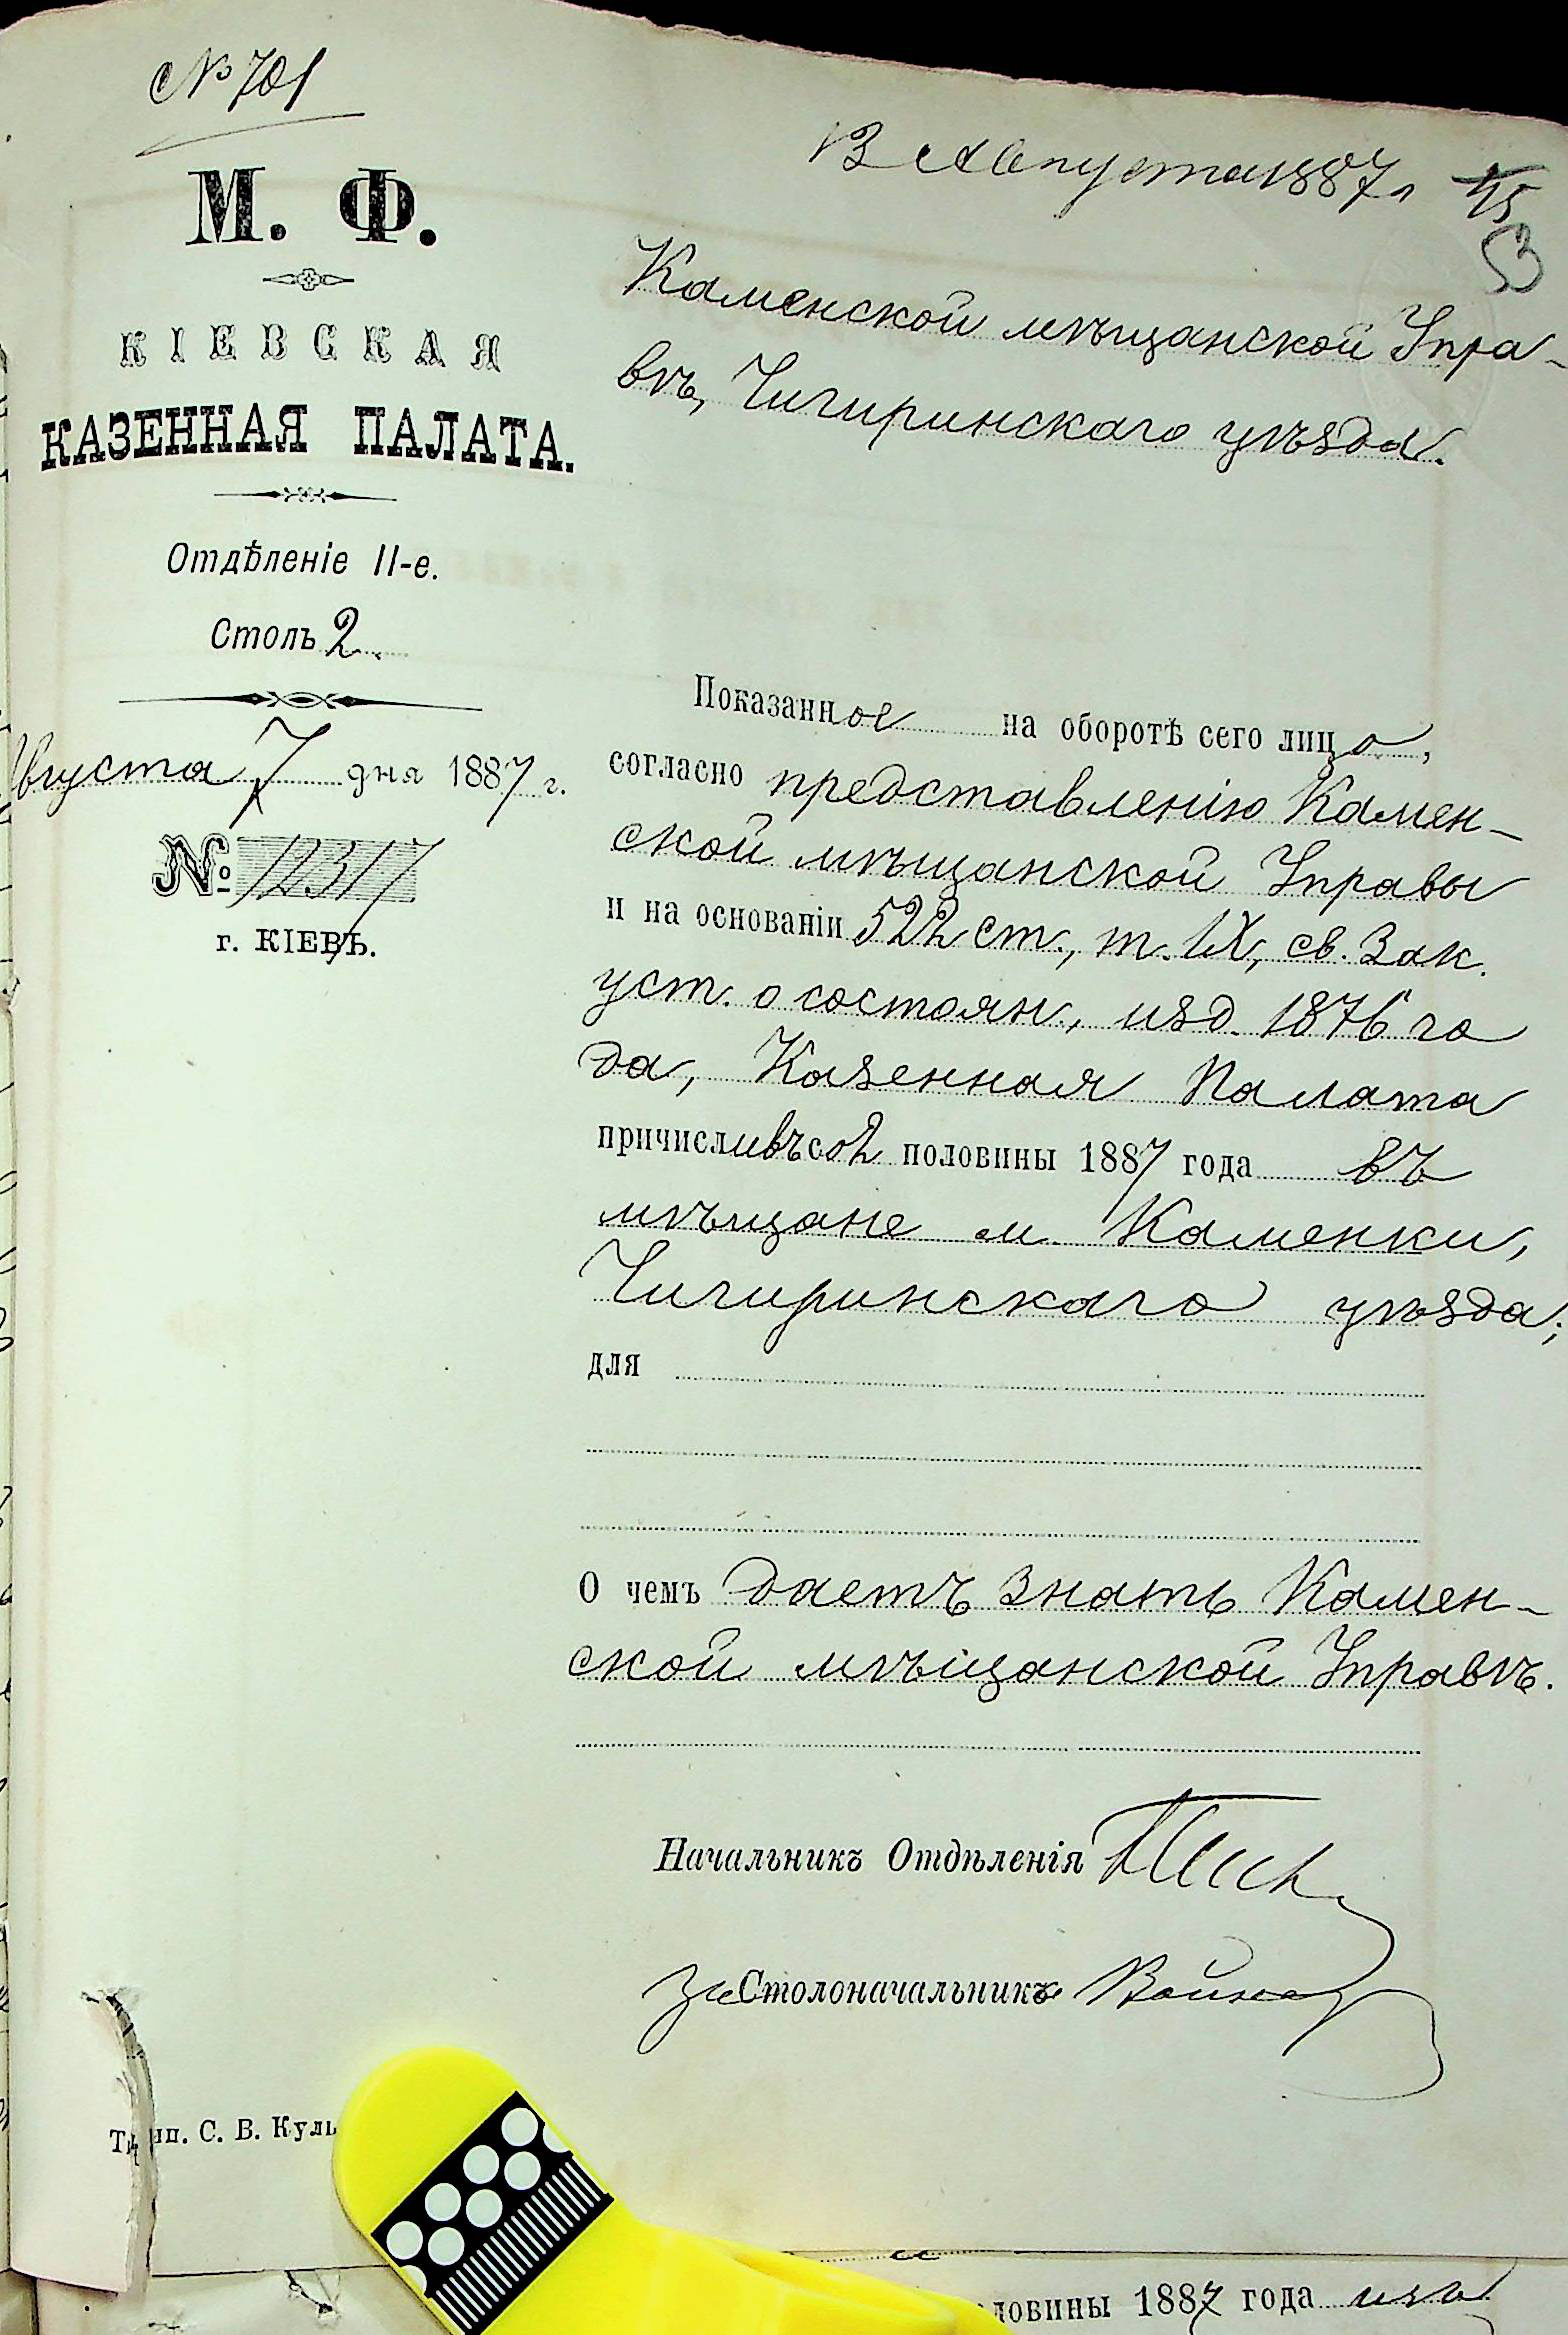 № 701
13 Августа 1887 г
53
М. Ф.
КІЕВСКАЯ
КАЗЕННАЯ ПАЛАТА.
Отдѣленіе II-е.
Столъ 2
вгуста 7 дня 1887 г.
№ 12317
г. КІЕВЪ.
Каменской мѣщанской Упра-
вѣ, Чигиринскаго уѣзда.
Показанное на оборотѣ сего лицо,
согласно представленію Камен-
ской мѣщанской Управы
и на основаніи 522 ст., т. IX, св. Зак.
уст. о состоян., изд. 1876 го
да, Казенная Палата
причисливъ со 2 половины 1887 года въ
мѣщане м. Каменки,
Чигиринскаго уѣзда;
для
О чемъ даетъ знать Камен-
ской мѣщанской Управѣ.
Начальникъ Отдѣленія
За Столоначальника
Тип. С. В. Куль
ловины 1887 года изъ